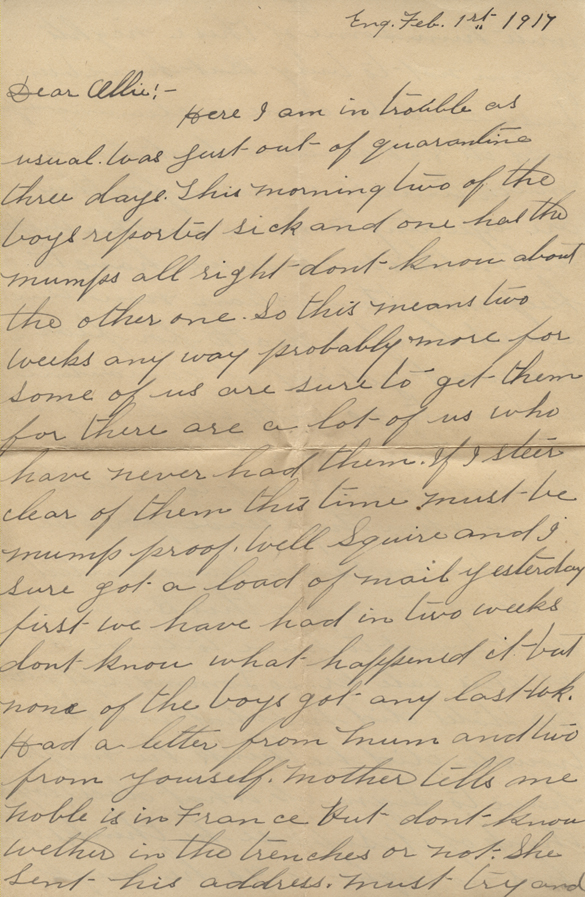 Eng. Feb. 1st 1917
Dear Allie:-
Here I am in trouble as
usual. Was just out of quarantine
three days. This morning two of the
boys reported sick and one has the
mumps all right dont know about
the other one. So this means two
weeks any way probably more for
some of us are sure to get them
for there are a lot of us who
have never had them. If I steer
clear of them this time must be
mump proof. Well Squire and I
sure got a load of mail yesterday
first we have had in two weeks
dont know what happened it but
none of the boys got any last wk.
Had a letter from Mum and two
from yourself. Mother tells me
Noble is in France but dont know
wether in the trenches or not. She
sent his address. Must try and